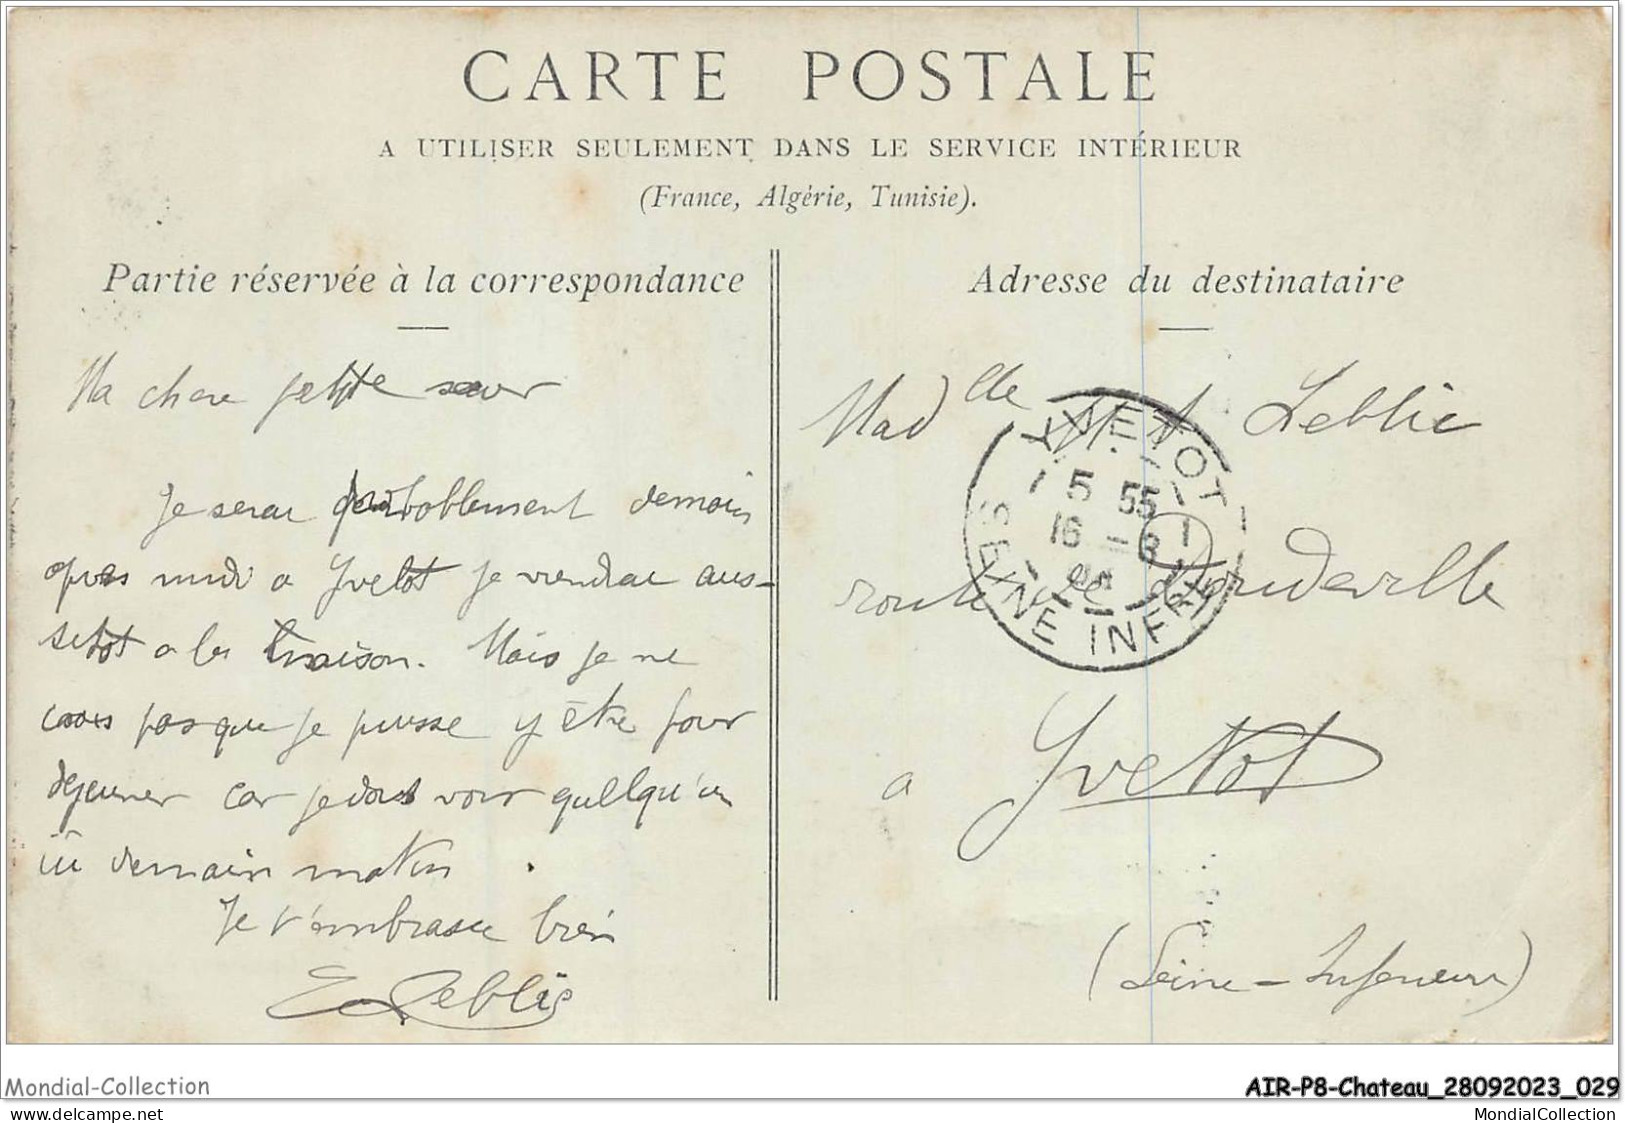 CARTE POSTALE
A UTILISER SEULEMENT DANS LE SERVICE INTÉRIEUR
(France, Algérie, Tunisie).
Partie réservée à la correspondance
Ma chere petite sœur
Je serai probablement demain
apres midi a Yvetot je viendrai aus-
sitot a la maison. Mais je ne
crois pas que je puisse y être pour
dejeuner car je dois voir quelqu'un
ici demain matin.
Je t'embrasse bien
E Leblic
Adresse du destinataire
Madlle M. A. Leblic
route de Doudeville
a Yvetot
(Seine-Inferieure)
YVETOT
5 55
16 - 8
SEINE INFRE
Mondial-Collection
AIR-P8-Chateau_28092023_029
delcampe.net
MondialCollection